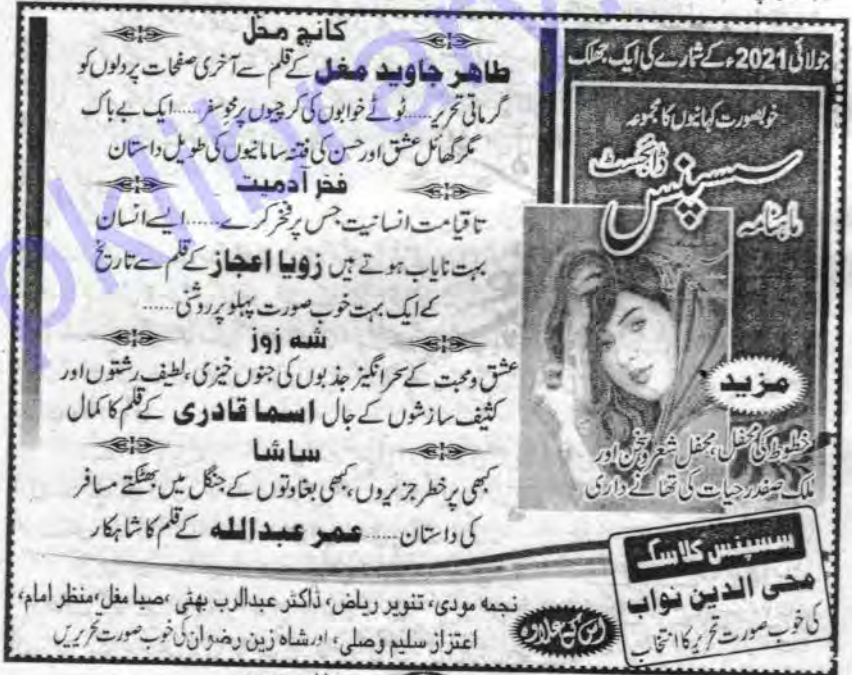 جولائی 2021ء کے شمارے کی ایک جھلک
خوبصورت کہانیوں کا مجموعہ
ماہنامہ سسپنس ڈائجسٹ
مزید
خطوط کی محفل، محفل شعر و سخن اور
ملک صفدر حیات کی تھانے داری
کانچ محل
طاھر جاوید مغل کے قلم سے آخری صفحات پر دلوں کو
گرماتی تحریر......ٹوٹے خوابوں کی کرچیوں پر محو سفر......ایک بے باک
مگر گھائل عشق اور حسن کی فتنہ سامانیوں کی طویل داستان
فخر آدمیت
تا قیامت انسانیت جس پر فخر کرے......ایسے انسان
بہت نایاب ہوتے ہیں زویا اعجاز کے قلم سے تاریخ
کے ایک بہت خوب صورت پہلو پر روشنی......
شہ زوز
عشق و محبت کے سحر انگیز جذبوں کی جنوں خیزی، لطیف رشتوں اور
کثیف سازشوں کے جال اسما قادری کے قلم کا کمال
ساشا
کبھی پر خطر جزیروں، کبھی بغاوتوں کے جنگل میں بھٹکتے مسافر
کی داستان...... عمر عبدالله کے قلم کا شاہکار
سسپنس کلاسک
محی الدین نواب
کی خوب صورت تحریر کا انتخاب
اس کے علاوہ
نجمہ مودی، تنویر ریاض، ڈاکٹر عبدالرب بھٹی، صبا مغل، منظر امام،
اعتزاز سلیم وصلی، اور شاہ زین رضوان کی خوب صورت تحریریں
pklibrary